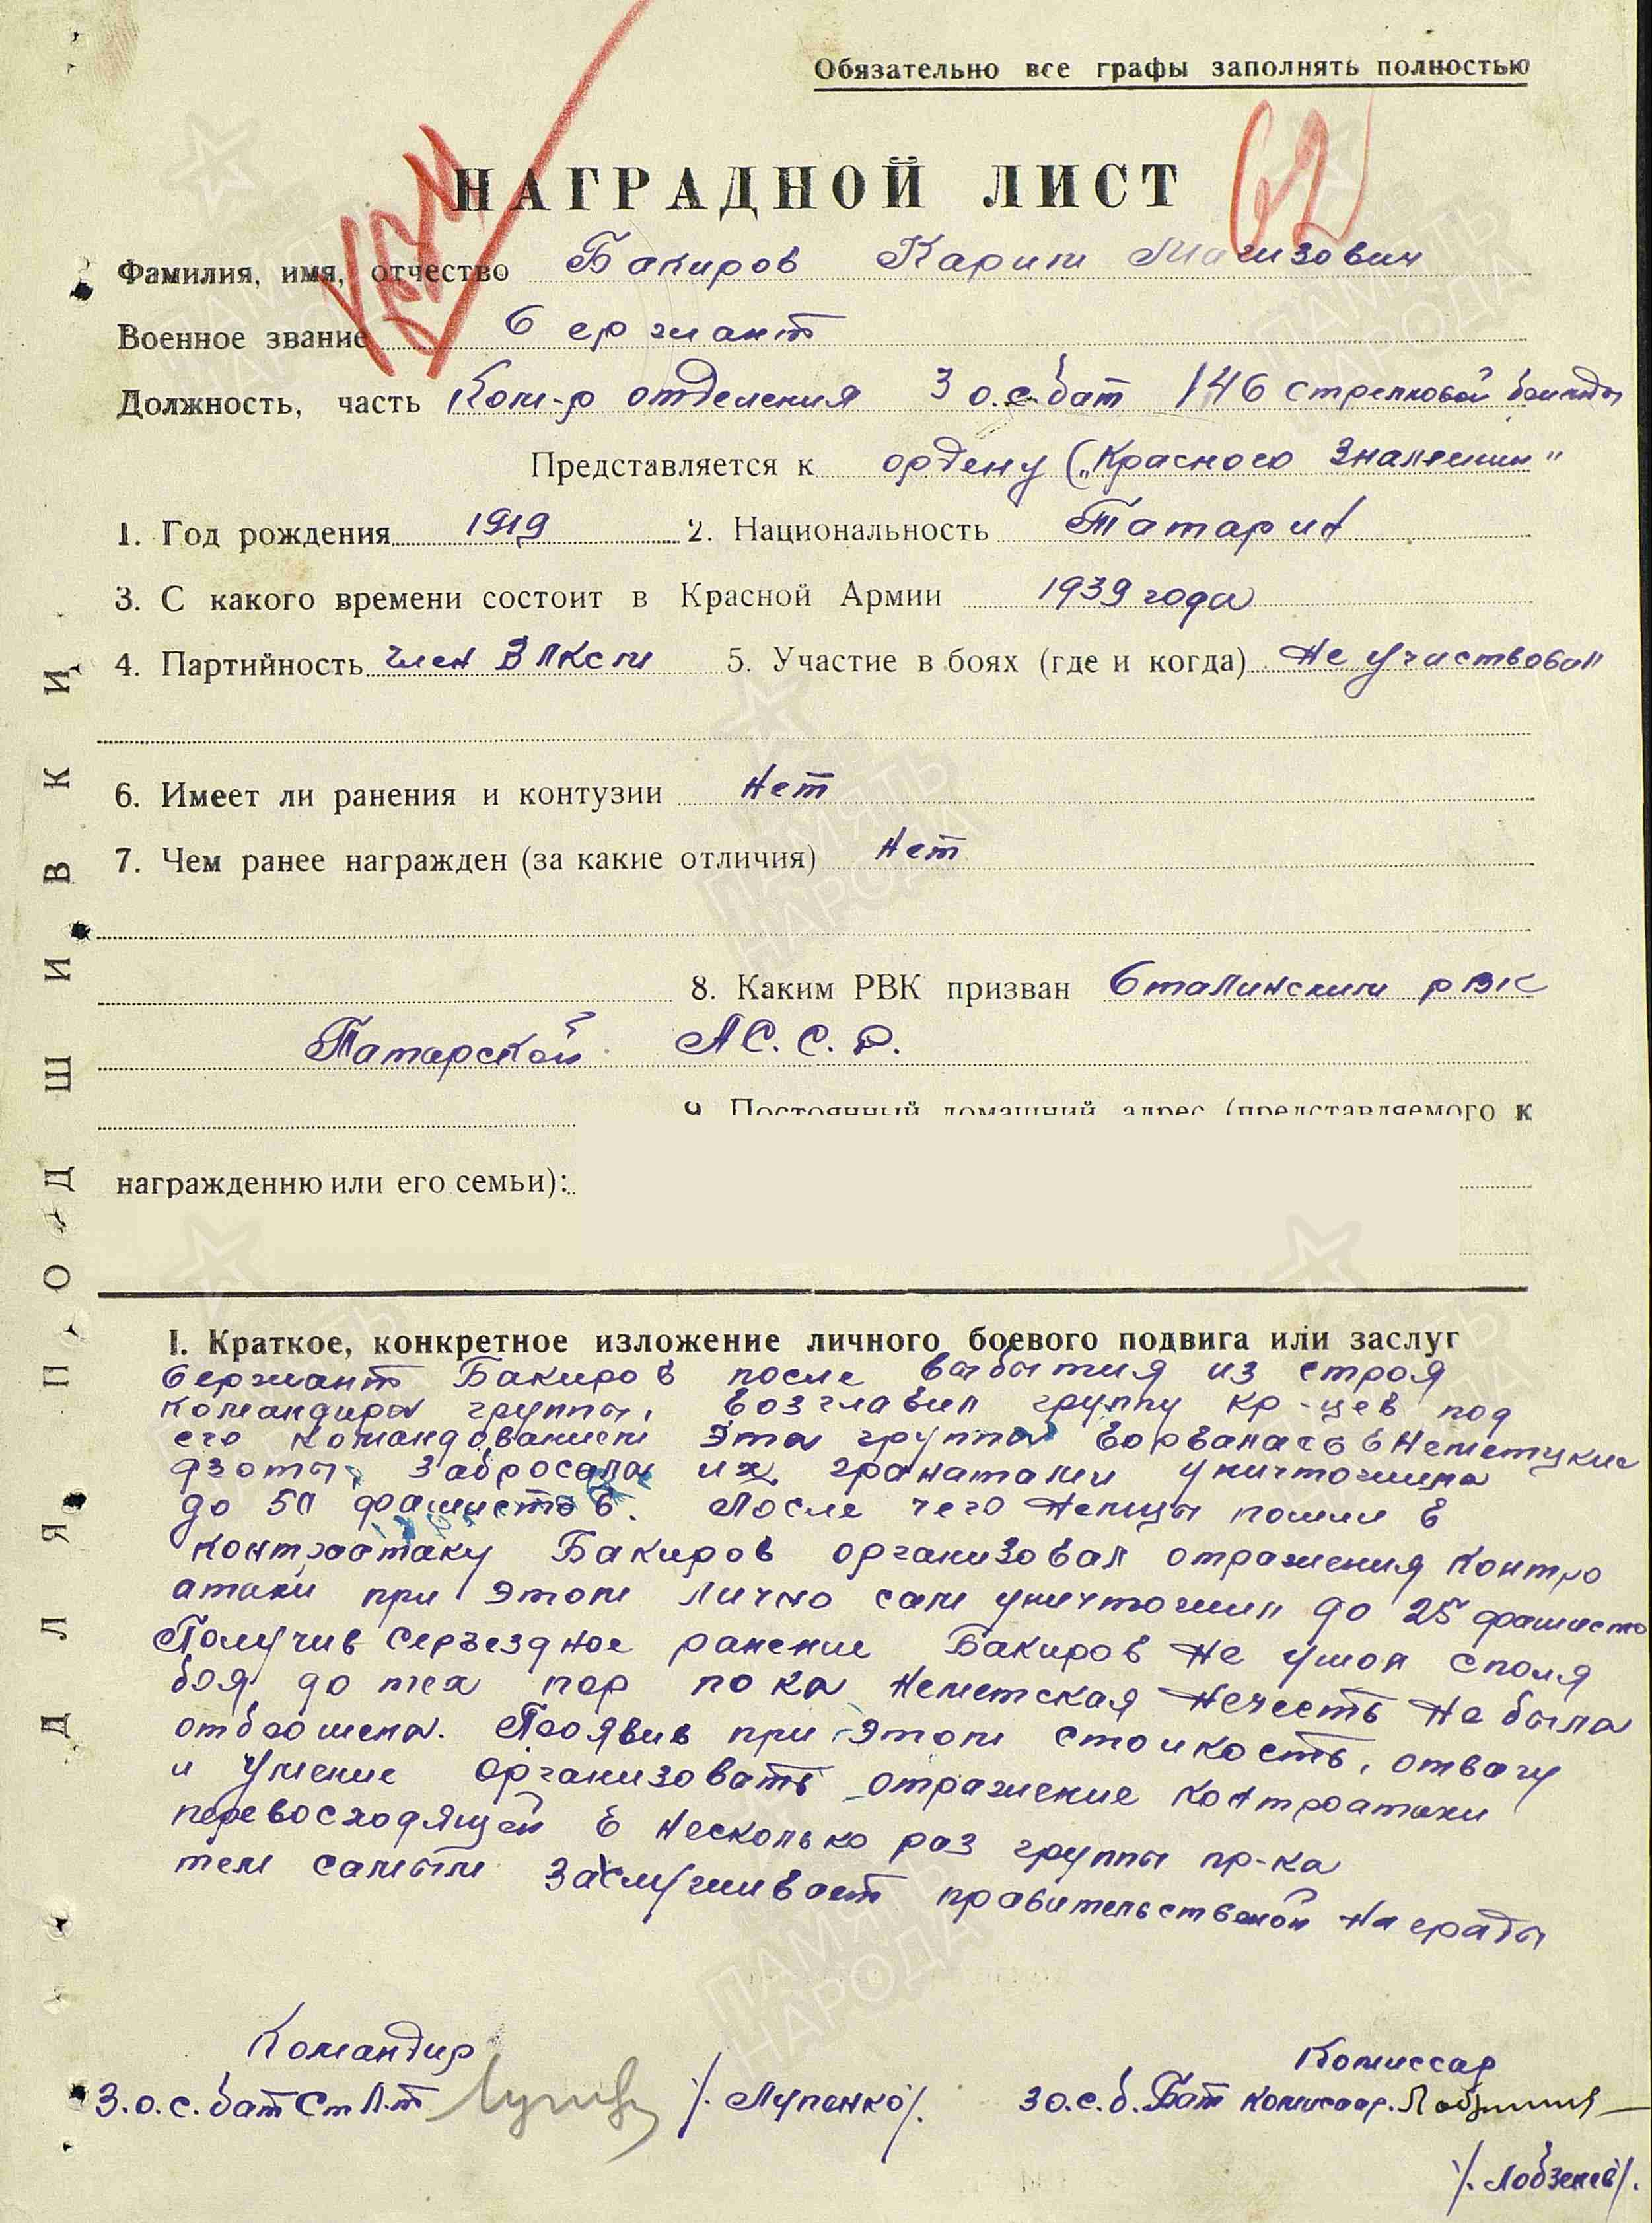 Обязательно все графы заполнять полностью
НАГРАДНОЙ ЛИСТ
62
Фамилия, имя, отчество Бакиров Карим Магизович
Военное звание Сержант
Должность, часть Ком-р отделения 3 о.с.бат 146 стрелковой бригады
Представляется к ордену („Красного Знамении"
1. Год рождения 1919 2. Национальность Татарин
3. С какого времени состоит в Красной Армии 1939 года
4. Партийность член ВЛКСМ 5. Участие в боях (где и когда) Не участвовал
6. Имеет ли ранения и контузии Нет
7. Чем ранее награжден (за какие отличия) Нет
8. Каким РВК призван Сталинским РВК
Татарской АС.С.Р.
9. Постоянный домашний адрес (представляемого к
награждению или его семьи):
I. Краткое, конкретное изложение личного боевого подвига или заслуг
Сержант Бакиров после выбытия из строя
командира группы, возглавил группу кр-цев под
его командованием эта группа ворвалась в Немецкие
дзоты, забросала их гранатами уничтожила
до 50 фашистов. После чего Немцы пошли в
контратаку Бакиров организовал отражения контр
атаки при этом лично сам уничтожил до 25 фашистов
Получив серъездное ранение Бакиров Не ушол споля
боя до тех пор пока Неметская Нечесть Не была
отброшена. Проявив при этом стоикость, отвагу
и умение организовать отражение контратаки
перевосходящей в несколько раз группы пр-ка
тем самым заслуживает правительственой Награды
Командир
3.о.с.бат Ст Л.т /.Лупенко/.
Комиссар
3о.с.б. Бат комиссар.
/.Лобзенев/.
ДЛЯ ПОДШИВКИ
ПАМЯТЬ НАРОДА